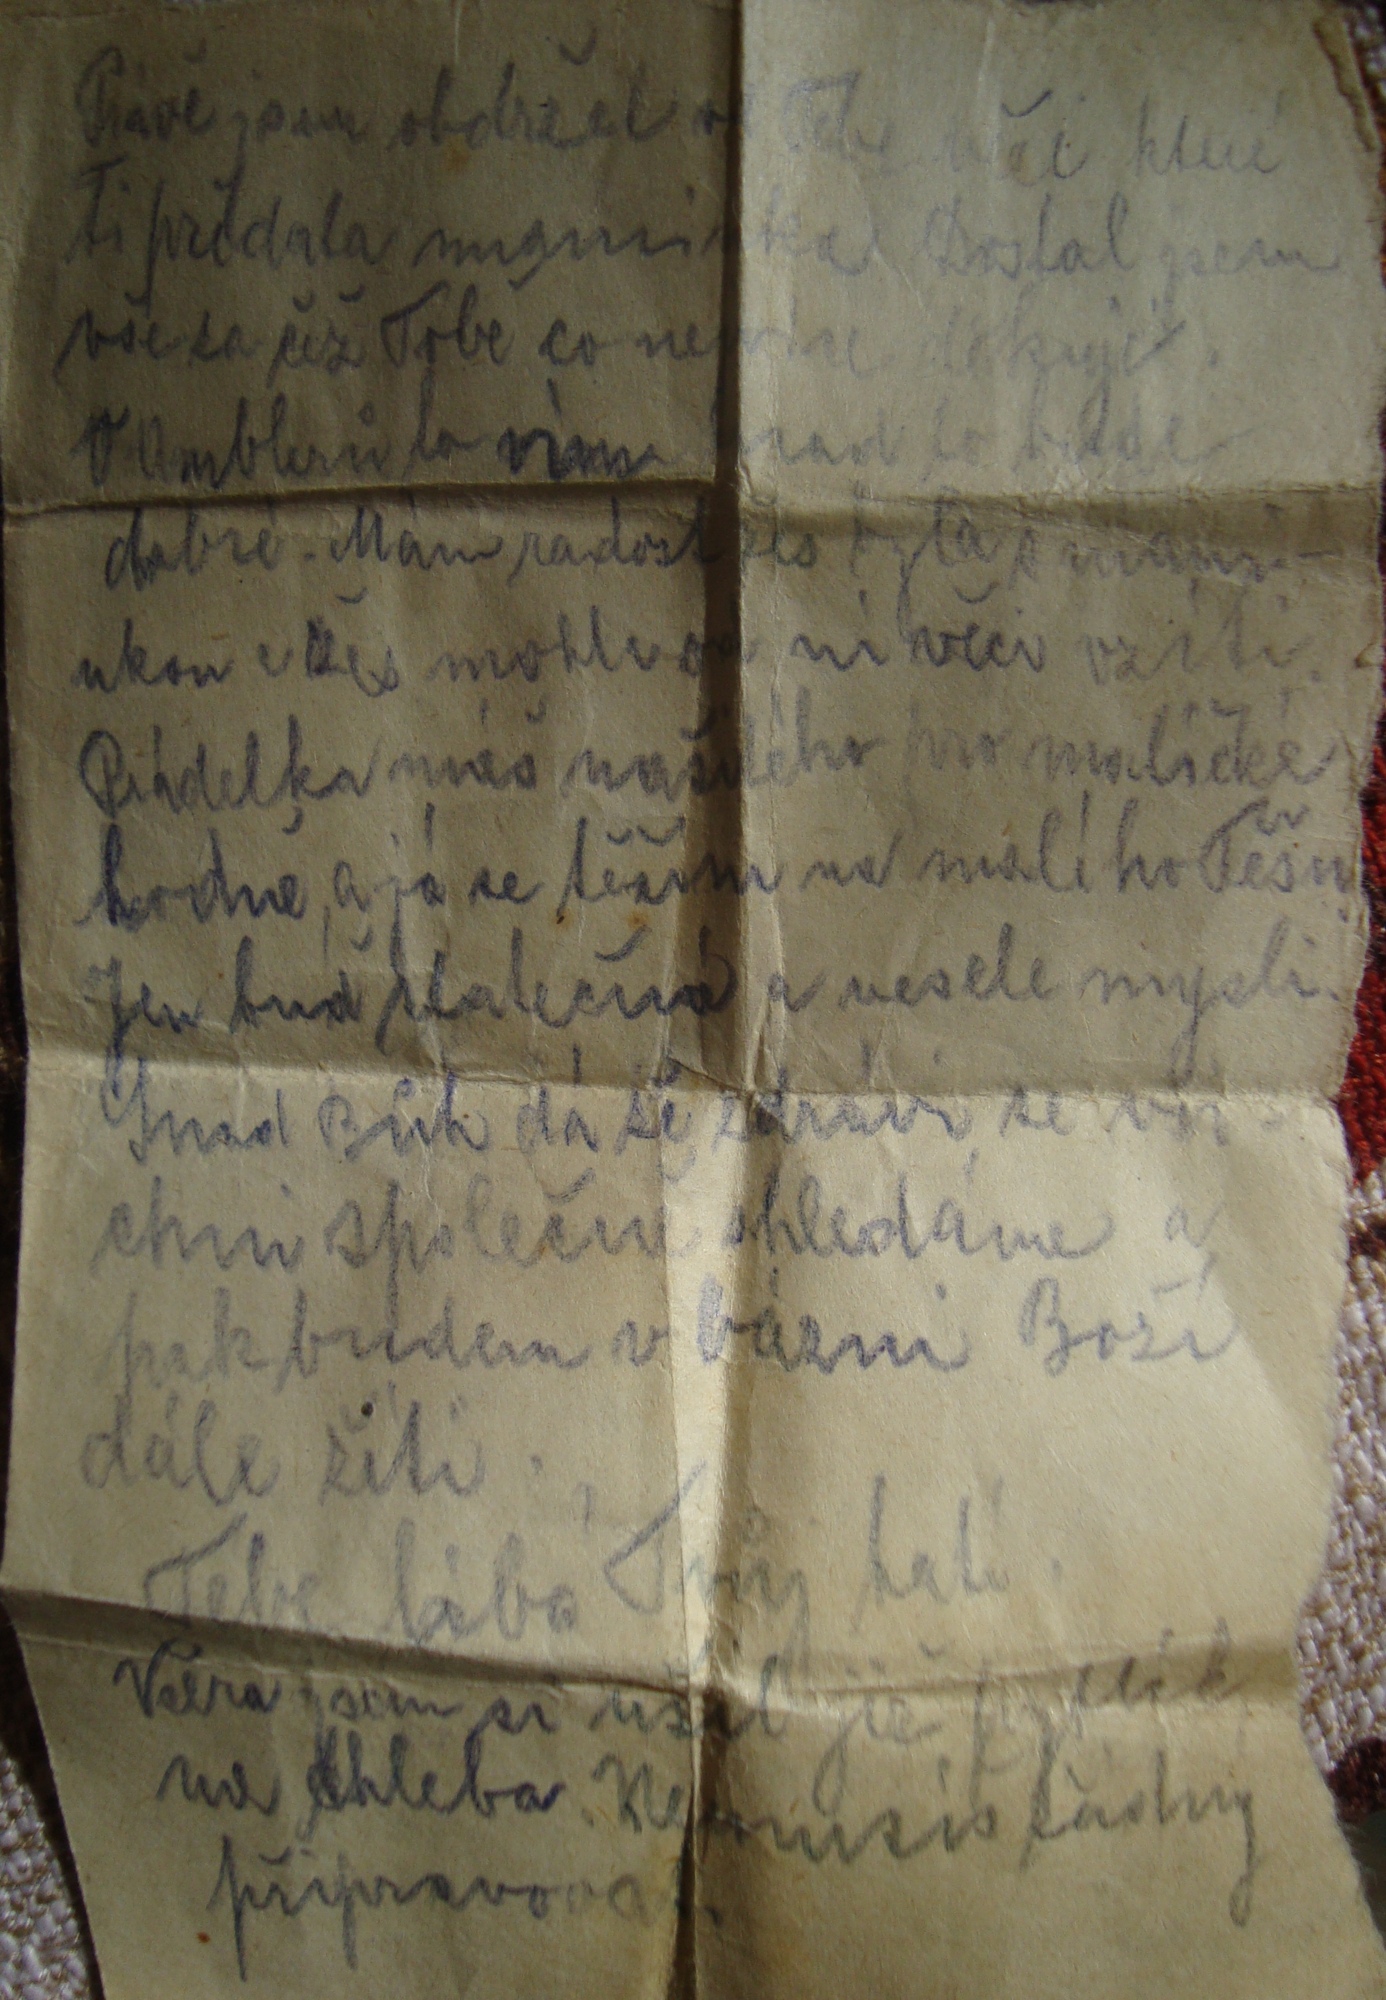 Právě jsem obdržel od Tebe věci které
Ti předala maminka Dostal jsem
vše za čež Tobě co nejvíce děkuji.
V to vím snad to bude
dobré. Mám radost žes byla s mami-
nkou a žes mohla od ní věci vzíti.
Prádelka máš našitého pro maličké
hodně, a já se těším na malího
Jen buď statečná a veselé mysli.
Snad Bůh dá že zdrávi se vši-
chni společně shledáme a
pak budem v bázni Boží
dále žíti.
Tebe líbá Tvůj
Včera jsem si ušil ještě pytlík
na chleba. Nemusíš žádný
připravovat.